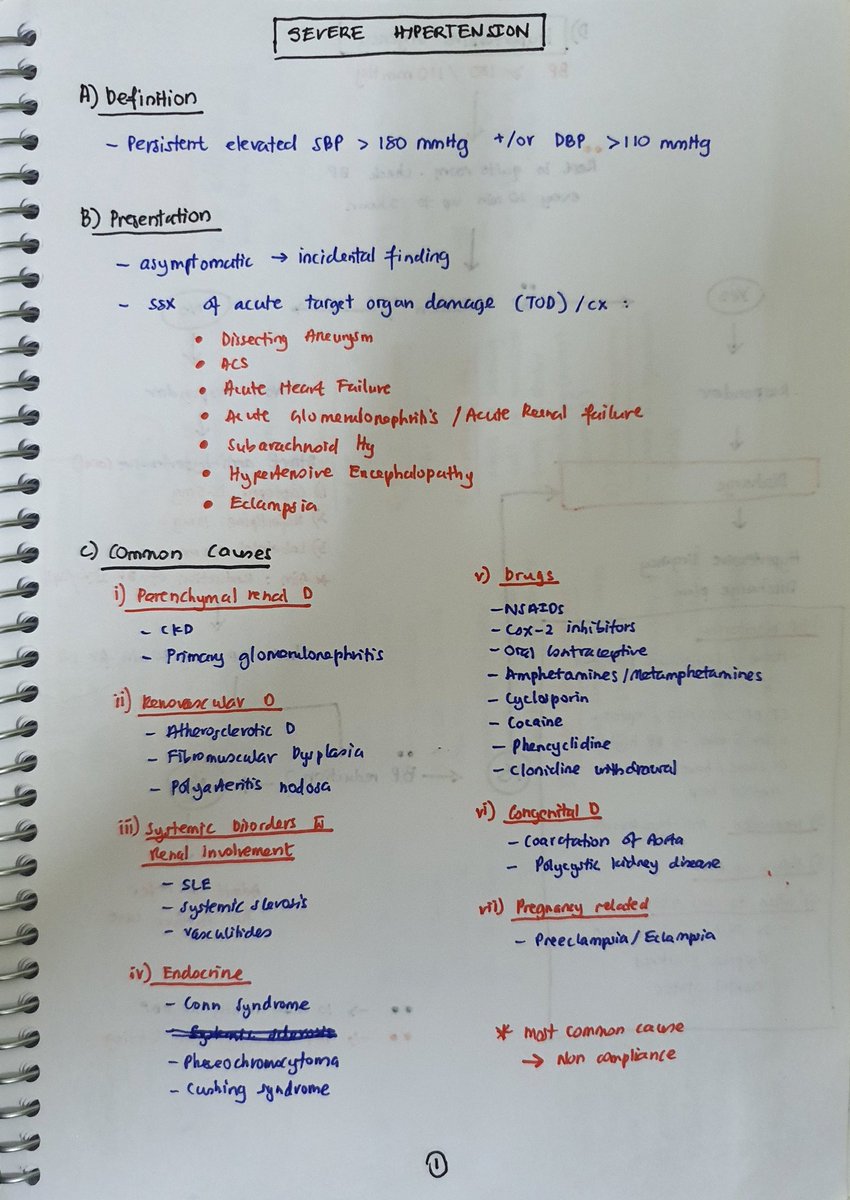 SEVERE HYPERTENSION
A) Definition
- Persistent elevated SBP > 180 mmHg +/or DBP >110 mmHg
B) Presentation
- asymptomatic → incidental finding
- ssx of acute target organ damage (TOD) / cx :
• Dissecting Aneurysm
• ACS
• Acute Heart Failure
• Acute Glomerulonephritis / Acute Renal failure
• Subarachnoid Hg
• Hypertensive Encephalopathy
• Eclampsia
C) Common Causes
i) Parenchymal renal D
- CKD
- Primary glomerulonephritis
ii) Renovascular D
- Atherosclerotic D
- Fibromuscular Dysplasia
- Polyarteritis nodosa
iii) Systemic Disorders
Renal Involvement
- SLE
- Systemic slerosis
- vasculitides
iv) Endocrine
- Conn syndrome
- Pheochromocytoma
- Cushing syndrome
v) Drugs
- NSAIDs
- Cox-2 inhibitors
- Oral contraceptive
- Amphetamines / Metamphetamines
- Cyclosporin
- Cocaine
- Phencyclidine
- Clonidine withdrawal
vi) Congenital D
- Coarctation of Aorta
- Polycystic kidney disease
vii) Pregnancy related
- Preeclampsia / Eclampsia
* most common cause
→ Non compliance
1